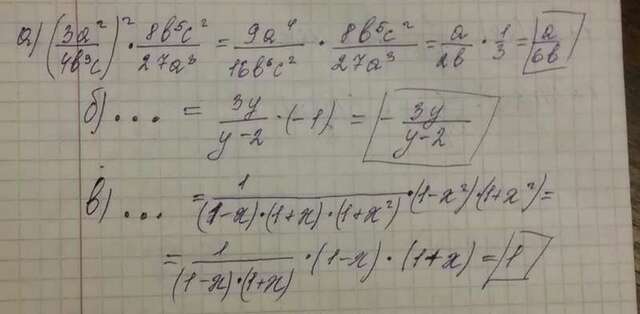 а) (3a²/4b³c)² · 8b⁵c²/27a³ = 9a⁴/16b⁶c² · 8b⁵c²/27a³ = a/2b · 1/3 = a/6b
б) ... = 3y/y-2 · (-1) = - 3y/y-2
в) ... = 1/(1-x)·(1+x)·(1+x²) · (1-x²)·(1+x²) =
= 1/(1-x)·(1+x) · (1-x) · (1+x) = 1